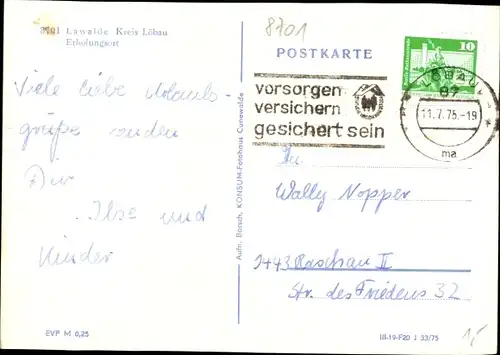 8701 Lawalde Kreis Löbau
Erholungsort
8701
POSTKARTE
10
LÖBAU
87
11.7.75.-19
ma
vorsorgen
versichern
gesichert sein
Viele liebe Urlaubs-
grüße senden
Dir
Ilse und
Kinder
Aufn. Borsch, KONSUM-Fotohaus Cunewalde
Wally Nopper
9443 Raschau II
Str. des Friedens 32
EVP M 0,25
III-19-F20 J 33/75